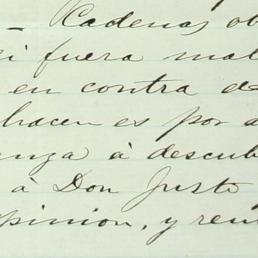 - Cadenas ob
i fuera mal
en contra de
hacen es por a
nza à descub
à Don Justo
pinion, y rem